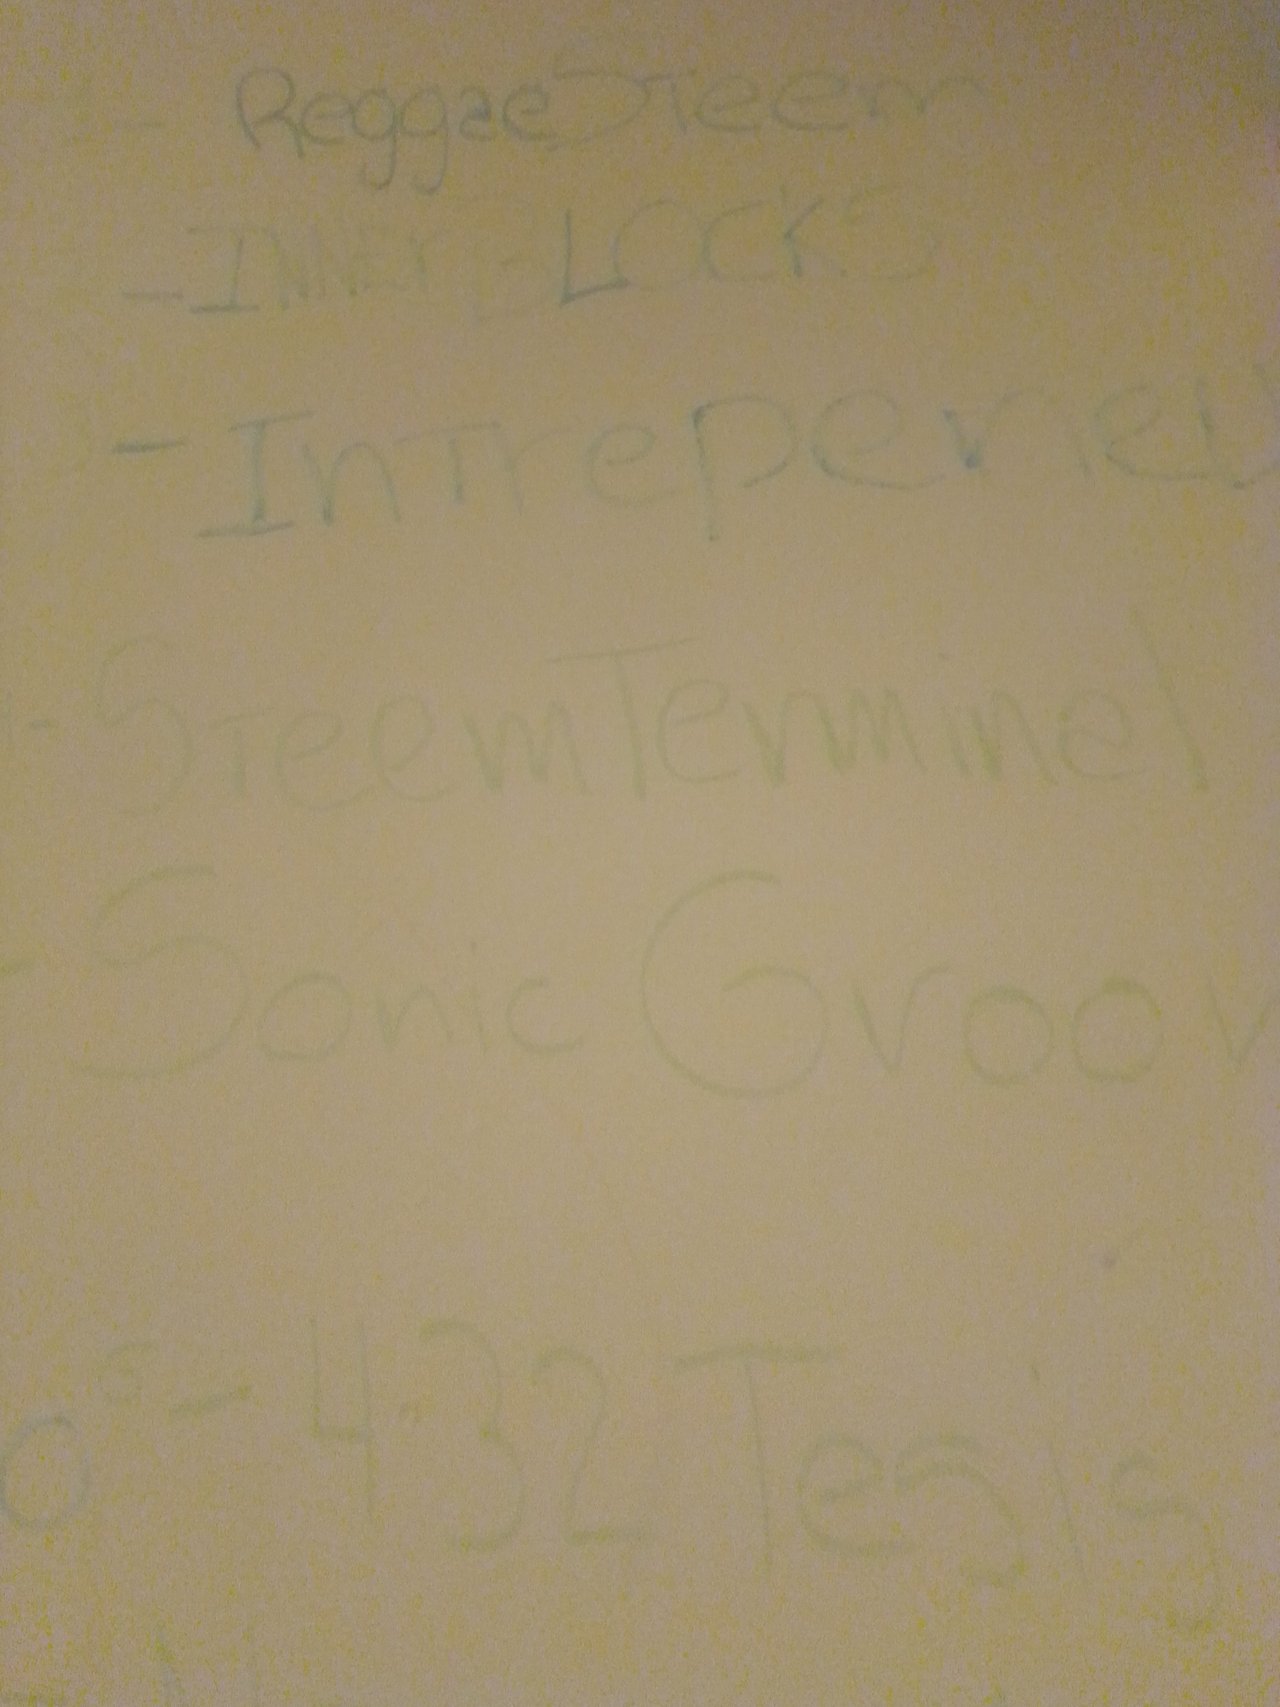 - ReggaeSteem
- INNER-LOCKS
- Intrepered
- SteemTerminel
- Sonic Groov
- 432 Tesls